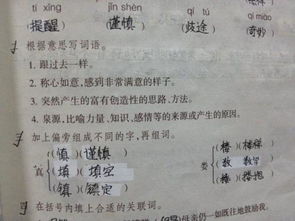 tí xǐng jǐn shèn qí tú qí miào
(提醒) (谨慎) (歧途) (奇妙)
根据意思写词语。
1. 跟过去一样。
2. 称心如意,感到非常满意的样子。
3. 突然产生的富有创造性的思路、方法。
4. 泉源,比喻力量、知识、感情等的来源或产生的原因。
加上偏旁组成不同的字,再组词。
(慎)(谨慎) (楼)
真 (填)(填空) 娄 (数)(数学)
(镇)(镇定) (搂)(搂抱)
在括号内填上合适的关联词。
母亲仍一如既往地鼓励我。